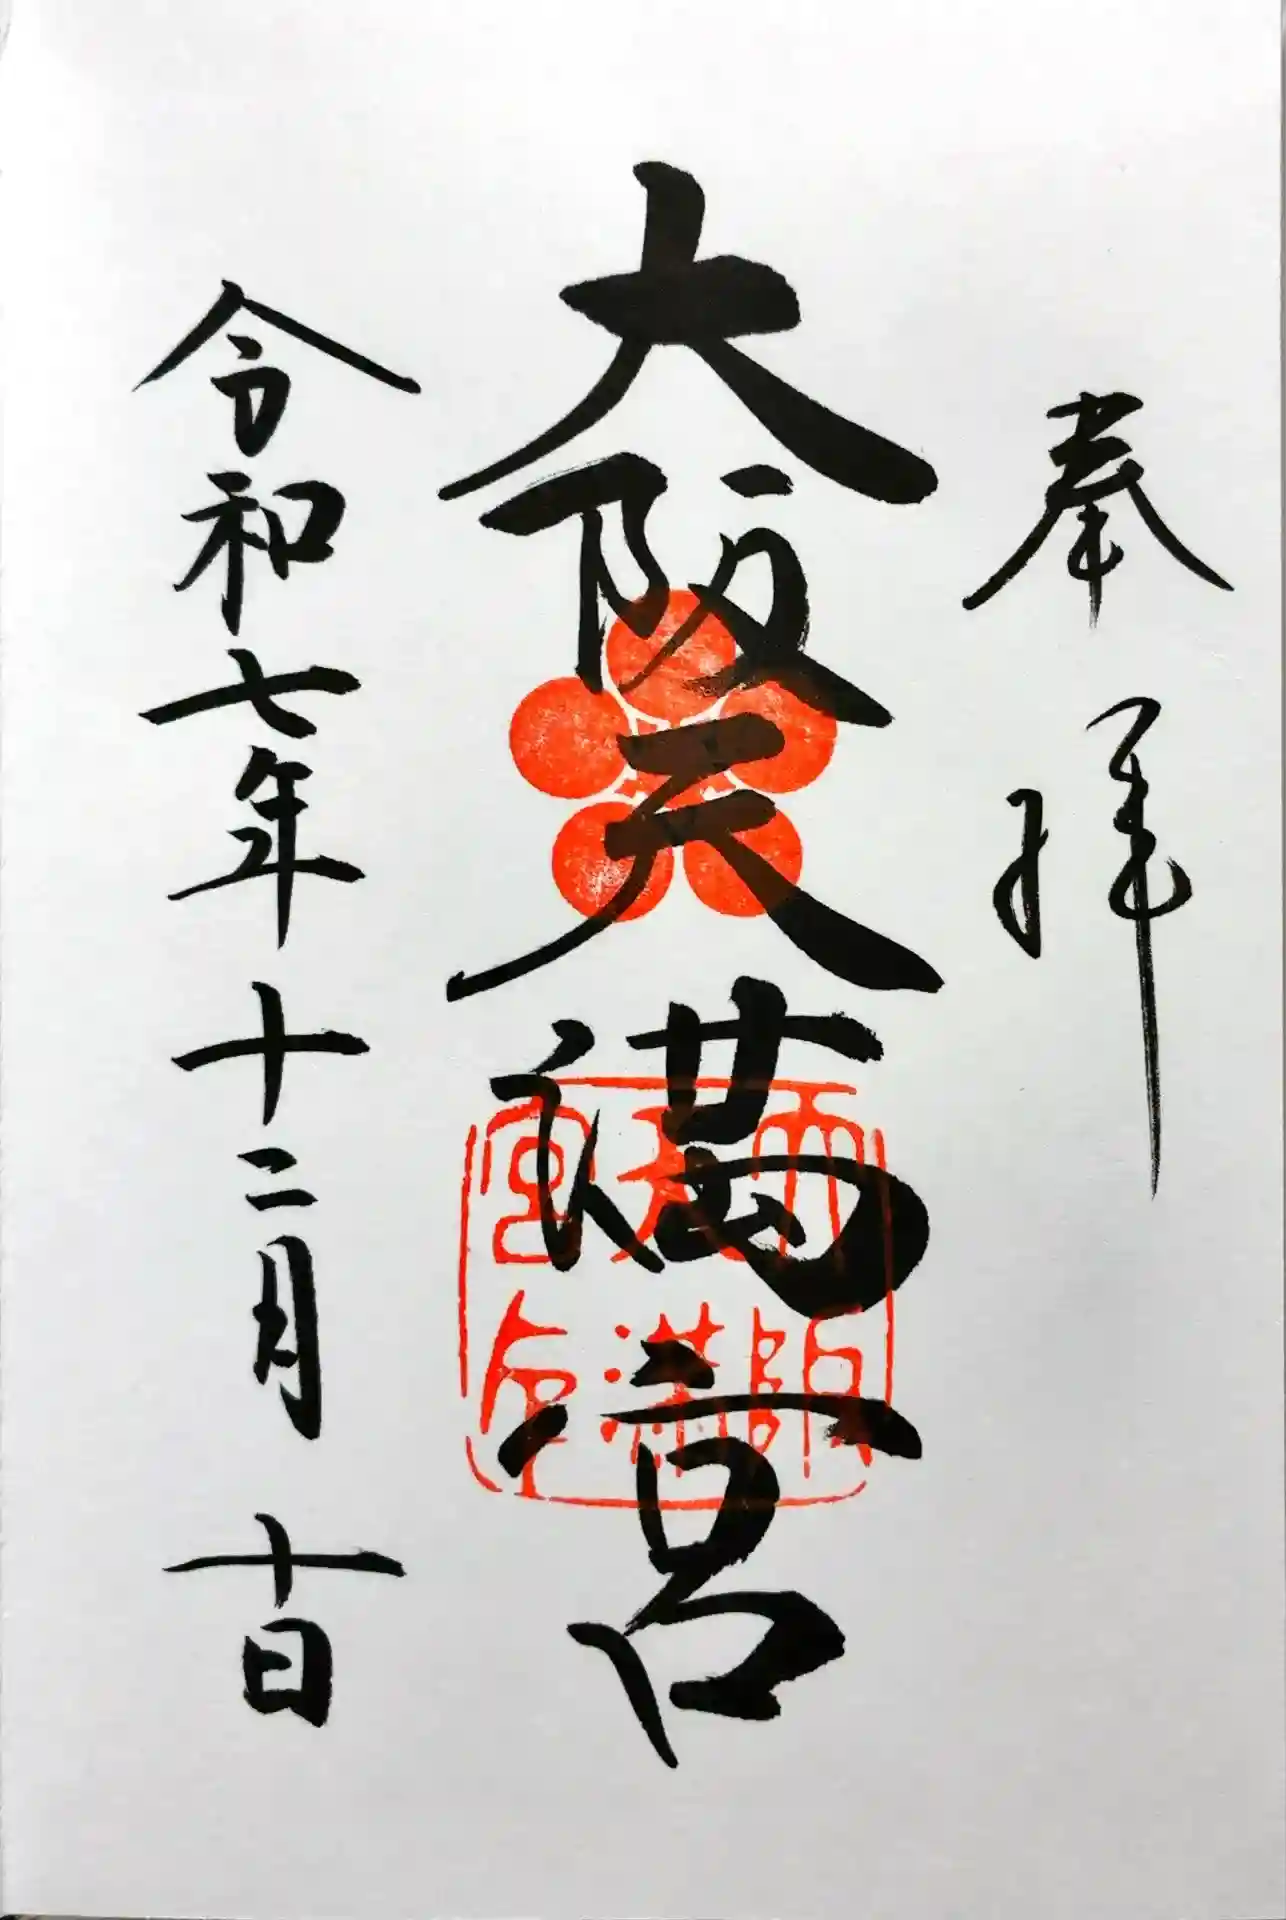 奉拝
大阪天満宮
大阪天満宮印
令和七年十二月十日